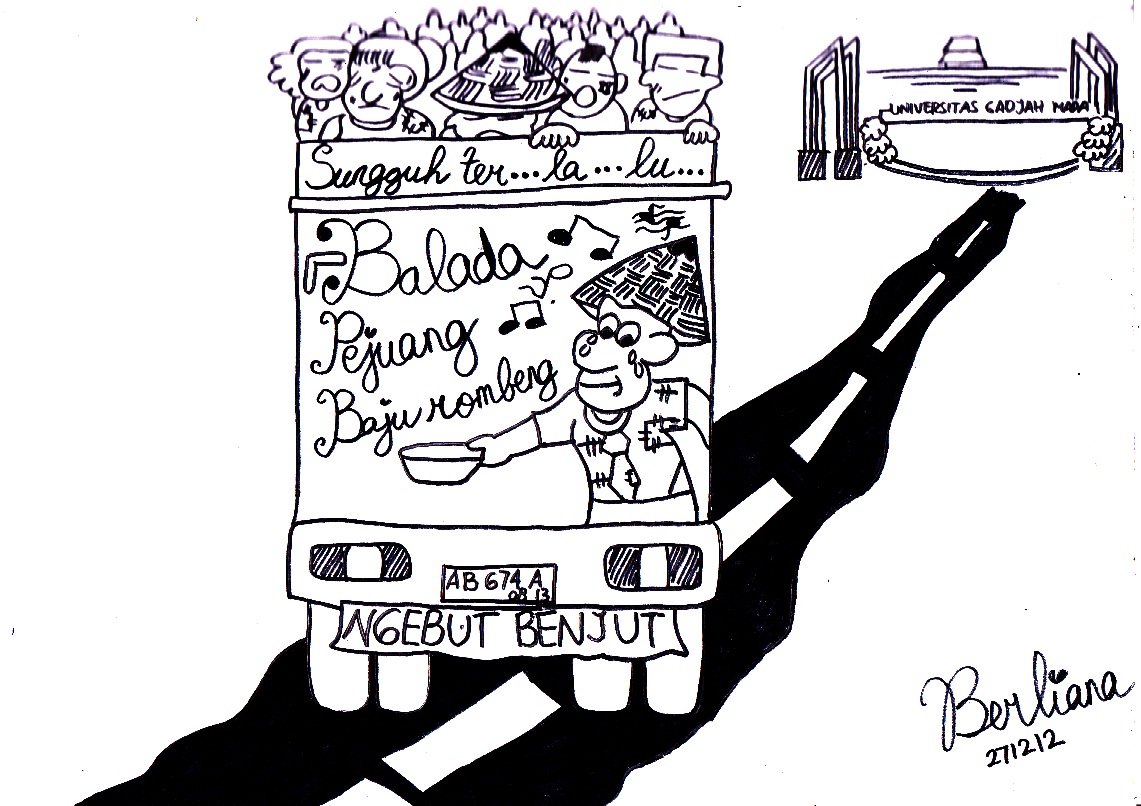 UNIVERSITAS GADJAH MADA
Sungguh ter...la...lu...
Balada
Pejuang
Baju rombeng
AB 674 A
08 13
NGEBUT BENJUT
Berliana
271212